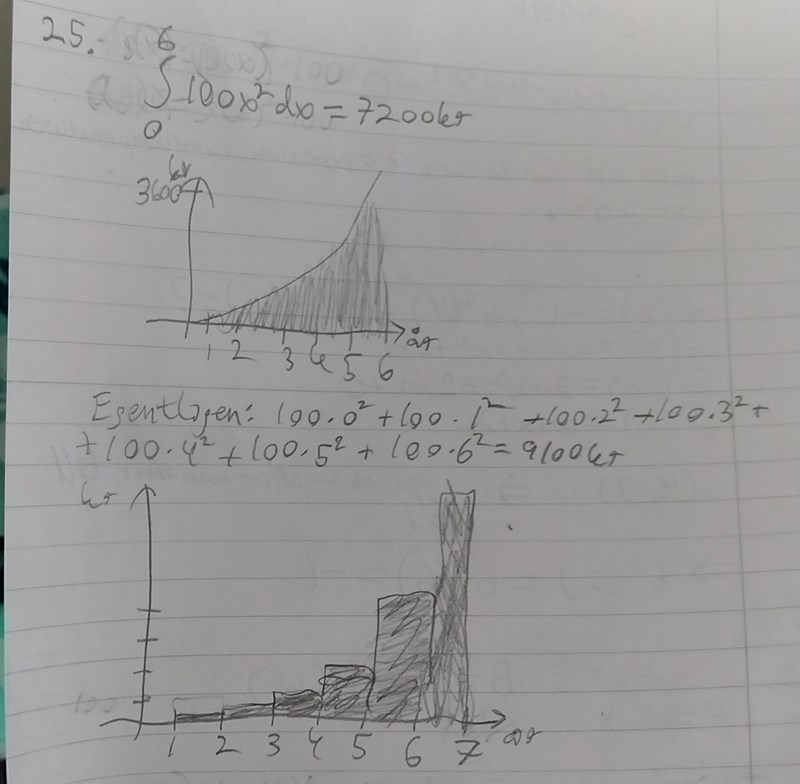 25.
6
∫ 100x² dx = 7200kr
0
kr
3600
1 2 3 4 5 6 år
Egentligen: 100·0² + 100·1² + 100·2² + 100·3² +
+ 100·4² + 100·5² + 100·6² = 9100kr
kr
1 2 3 4 5 6 7 år